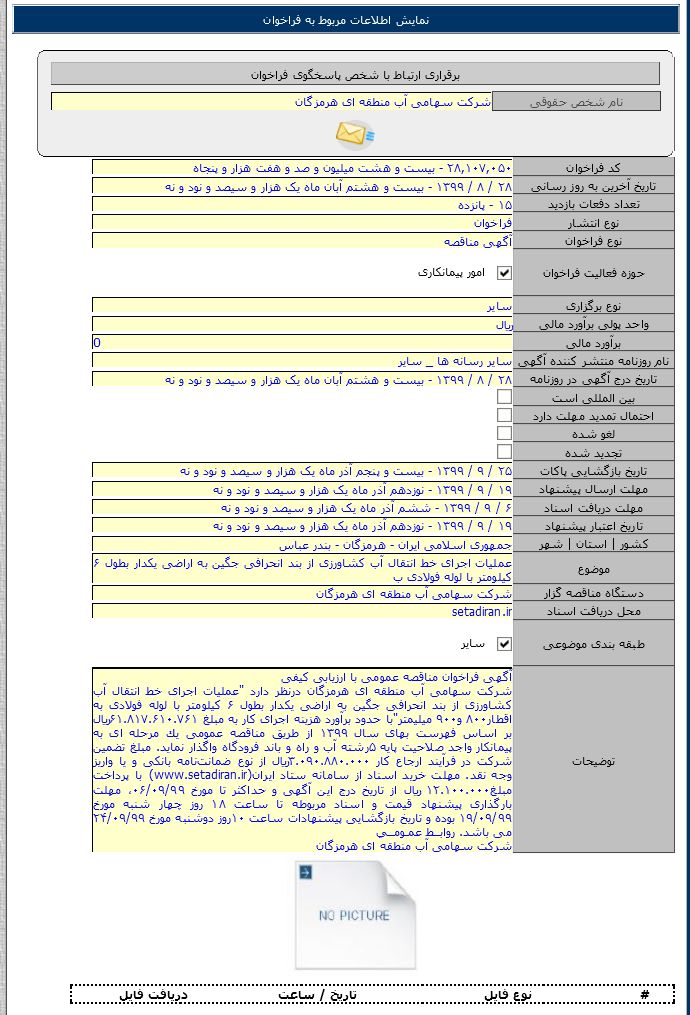 نمایش اطلاعات مربوط به فراخوان
برقراری ارتباط با شخص پاسخگوی فراخوان
نام شخص حقوقی شرکت سهامی آب منطقه ای هرمزگان
کد فراخوان ۲۸,۱۰۷,۰۵۰ - بیست و هشت میلیون و صد و هفت هزار و پنجاه
تاریخ آخرین به روز رسانی ۲۸ / ۸ / ۱۳۹۹ - بیست و هشتم آبان ماه یک هزار و سیصد و نود و نه
تعداد دفعات بازدید ۱۵ - پانزده
نوع انتشار فراخوان
نوع فراخوان آگهی مناقصه
حوزه فعالیت فراخوان امور پیمانکاری
نوع برگزاری سایر
واحد پولی برآورد مالی ریال
برآورد مالی 0
نام روزنامه منتشر کننده آگهی سایر رسانه ها _ سایر
تاریخ درج آگهی در روزنامه ۲۸ / ۸ / ۱۳۹۹ - بیست و هشتم آبان ماه یک هزار و سیصد و نود و نه
بین المللی است
احتمال تمدید مهلت دارد
لغو شده
تجدید شده
تاریخ بازگشایی پاکات ۲۵ / ۹ / ۱۳۹۹ - بیست و پنجم آذر ماه یک هزار و سیصد و نود و نه
مهلت ارسال پیشنهاد ۱۹ / ۹ / ۱۳۹۹ - نوزدهم آذر ماه یک هزار و سیصد و نود و نه
مهلت دریافت اسناد ۶ / ۹ / ۱۳۹۹ - ششم آذر ماه یک هزار و سیصد و نود و نه
تاریخ اعتبار پیشنهاد ۱۹ / ۹ / ۱۳۹۹ - نوزدهم آذر ماه یک هزار و سیصد و نود و نه
کشور | استان | شهر جمهوری اسلامی ایران - هرمزگان - بندر عباس
موضوع عملیات اجرای خط انتقال آب کشاورزی از بند انحرافی جگین به اراضی یکدار بطول ۶
کیلومتر با لوله فولادی ب
دستگاه مناقصه گزار شرکت سهامی آب منطقه ای هرمزگان
محل دریافت اسناد setadiran.ir
طبقه بندی موضوعی سایر
توضیحات
آگهی فراخوان مناقصه عمومی با ارزیابی کیفی
شرکت سهامی آب منطقه ای هرمزگان درنظر دارد "عملیات اجرای خط انتقال آب
کشاورزی از بند انحرافی جگین به اراضی یکدار بطول ۶ کیلومتر با لوله فولادی به
اقطار۸۰۰ و۹۰۰ میلیمتر"با حدود برآورد هزینه اجرای کار به مبلغ ۶۱.۸۱۷.۶۱۰.۷۶۱ریال
بر اساس فهرست بهای سال ۱۳۹۹ از طریق مناقصه عمومی یك مرحله ای به
پیمانکار واجد صلاحیت پایه ۵رشته آب و راه و باند فرودگاه واگذار نماید. مبلغ تضمین
شرکت در فرآیند ارجاع کار ۳.۰۹۰.۸۸۰.۰۰۰ریال از نوع ضمانت‌نامه بانکی و یا واریز
وجه نقد. مهلت خرید اسناد از سامانه ستاد ایران(www.setadiran.ir) با پرداخت
مبلغ۱۲.۱۰۰.۰۰۰ ریال از تاریخ درج این آگهی و حداکثر تا مورخ ۰۶/۰۹/۹۹، مهلت
بارگذاری پیشنهاد قیمت و اسناد مربوطه تا ساعت ۱۸ روز چهار شنبه مورخ
۱۹/۰۹/۹۹ بوده و تاریخ بازگشایی پیشنهادات ساعت ۱۰روز دوشنبه مورخ ۲۴/۰۹/۹۹
می باشد. روابـط عمومـی
شرکت سهامی آب منطقه ای هرمزگان
NO PICTURE
# نوع فایل تاریخ / ساعت دریافت فایل